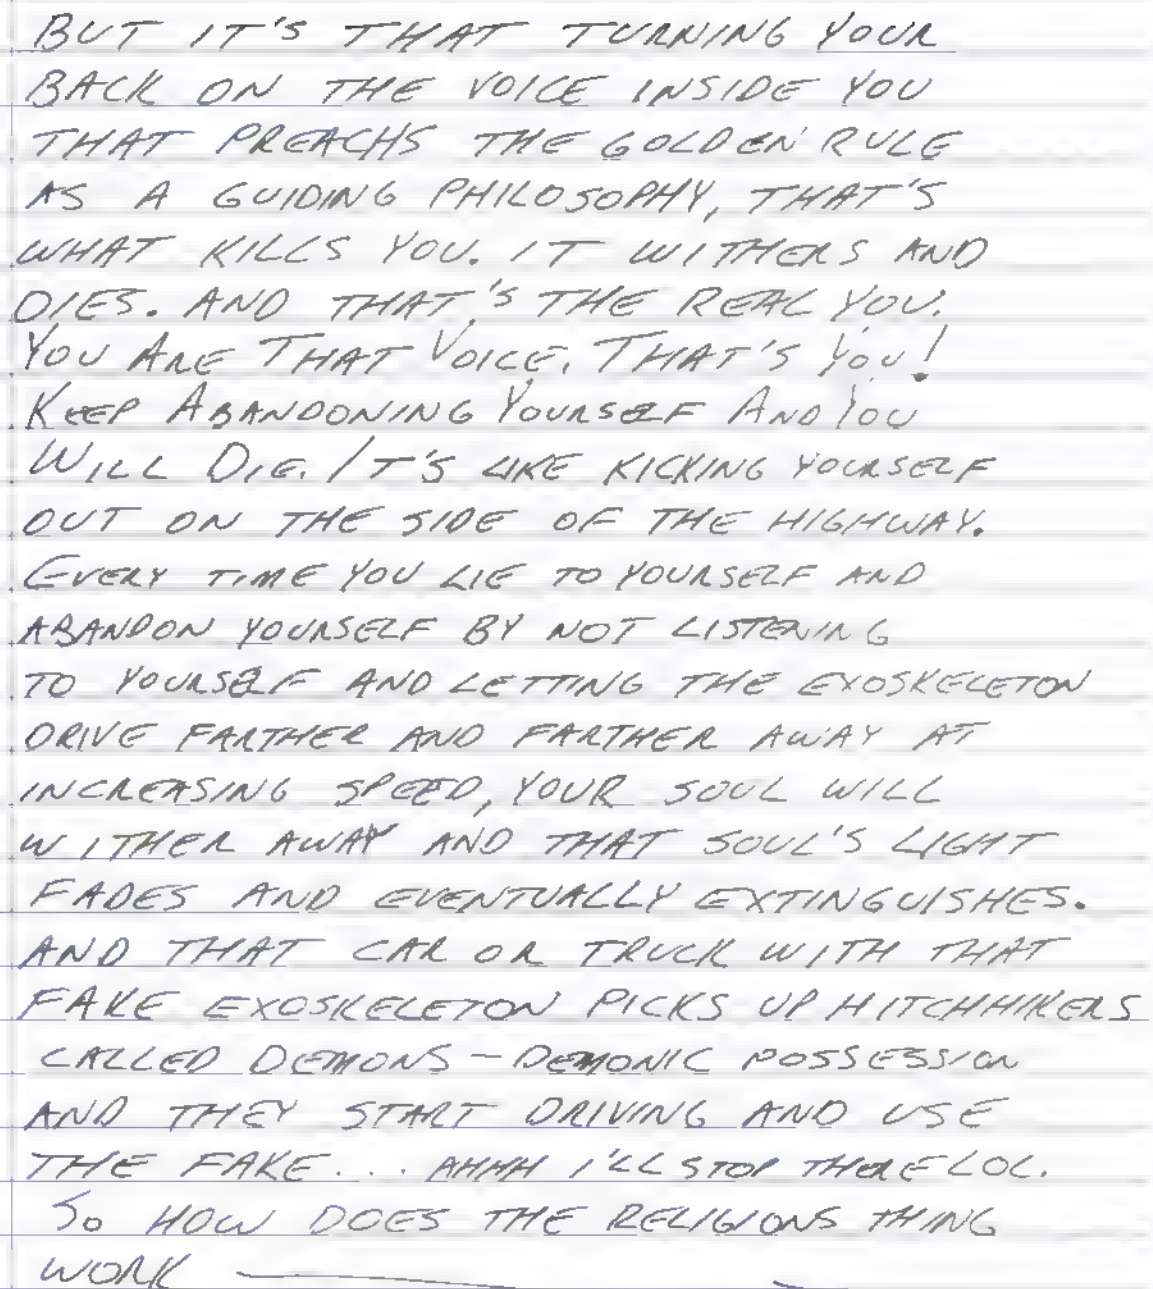 BUT IT'S THAT TURNING YOUR
BACK ON THE VOICE INSIDE YOU
THAT PREACHS THE GOLDEN RULE
AS A GUIDING PHILOSOPHY, THAT'S
WHAT KILLS YOU. IT WITHERS AND
DIES. AND THAT'S THE REAL YOU.
YOU ARE THAT VOICE. THAT'S YOU!
KEEP ABANDONING YOURSELF AND YOU
WILL DIE. IT'S LIKE KICKING YOURSELF
OUT ON THE SIDE OF THE HIGHWAY.
EVERY TIME YOU LIE TO YOURSELF AND
ABANDON YOURSELF BY NOT LISTENING
TO YOURSELF AND LETTING THE EXOSKELETON
DRIVE FARTHER AND FARTHER AWAY AT
INCREASING SPEED, YOUR SOUL WILL
WITHER AWAY AND THAT SOUL'S LIGHT
FADES AND EVENTUALLY EXTINGUISHES.
AND THAT CAR OR TRUCK WITH THAT
FAKE EXOSKELETON PICKS UP HITCHHIKERS
CALLED DEMONS - DEMONIC POSSESSION
AND THEY START DRIVING AND USE
THE FAKE... AHHH I'LL STOP THERE LOL.
SO HOW DOES THE RELIGIONS THING
WORK